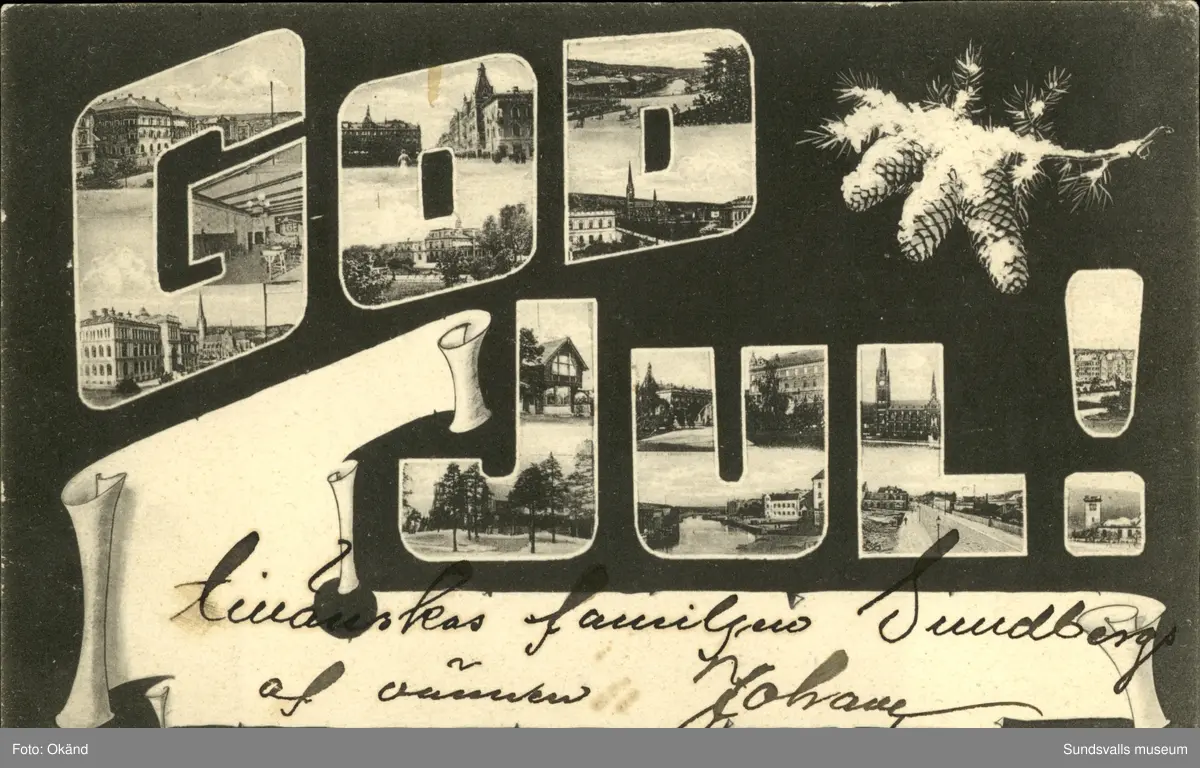 GOD
JUL!
tillönskas familjen Sundbergs
af vännen Johan
Foto: Okänd
Sundsvalls museum